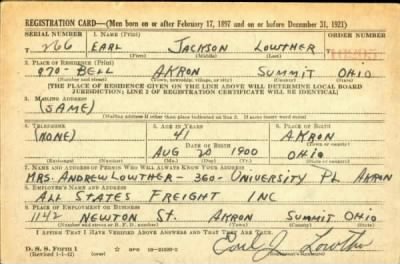 REGISTRATION CARD—(Men born on or after February 17, 1897 and on or before December 31, 1921)
SERIAL NUMBER 1. NAME (Print) ORDER NUMBER
T 266 EARL JACKSON LOWTHER T
(First) (Middle) (Last)
2. PLACE OF RESIDENCE (Print)
970-BELL AKRON SUMMIT OHIO
(Number and street) (Town, township, village, or city) (County) (State)
[THE PLACE OF RESIDENCE GIVEN ON THE LINE ABOVE WILL DETERMINE LOCAL BOARD
JURISDICTION; LINE 2 OF REGISTRATION CERTIFICATE WILL BE IDENTICAL]
3. MAILING ADDRESS
(SAME)
[Mailing address if other than place indicated on line 2. If same insert word same]
4. TELEPHONE 5. AGE IN YEARS 6. PLACE OF BIRTH
(NONE) 41 AKRON
DATE OF BIRTH
AUG 20 1900 OHIO
(Exchange) (Number) (Mo.) (Day) (Yr.) (State or country)
7. NAME AND ADDRESS OF PERSON WHO WILL ALWAYS KNOW YOUR ADDRESS
MRS. ANDREW LOWTHER - 360- UNIVERSITY PL AKRON
8. EMPLOYER'S NAME AND ADDRESS
ALL STATES FREIGHT INC
9. PLACE OF EMPLOYMENT OR BUSINESS
1142 NEWTON ST. AKRON SUMMIT OHIO
(Number and street or R. F. D. number) (Town) (County) (State)
I AFFIRM THAT I HAVE VERIFIED ABOVE ANSWERS AND THAT THEY ARE TRUE.
D. S. S. Form 1
(Revised 1-1-42) (over) Earl J. Lowther